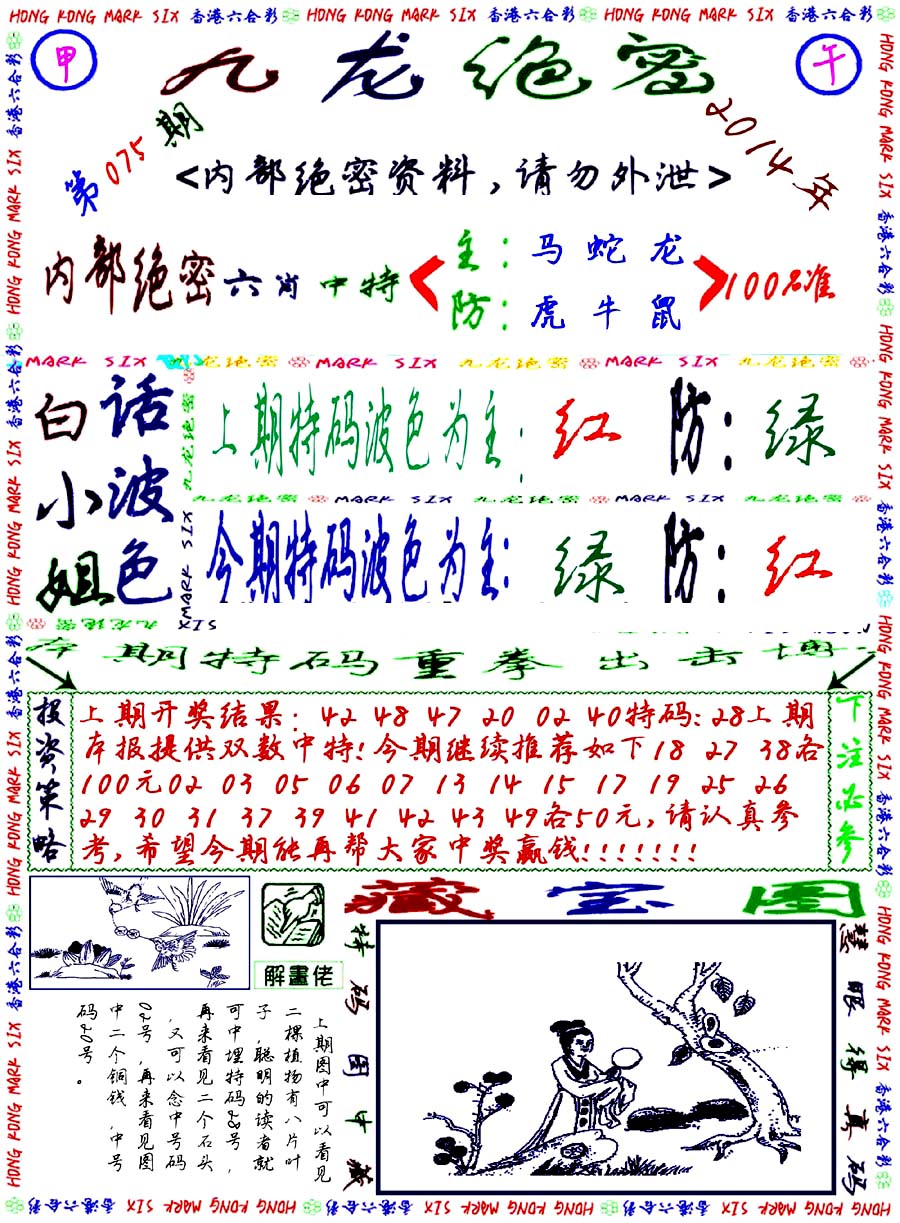 HONG KONG MARK SIX 香港六合彩 HONG KONG MARK SIX 香港六合彩 HONG KONG MARK SIX 香港六合彩
甲
九龙绝密
午
第075期
2014年
<内部绝密资料,请勿外泄>
内部绝密六肖中特
主:马 蛇 龙
防:虎 牛 鼠
100%准
MARK SIX 九龙绝密 MARK SIX 九龙绝密 MARK SIX 九龙绝密
白话
小波
姐色
上期特码波色为主:红 防:绿
九龙绝密 MARK SIX 九龙绝密 MARK SIX 九龙绝密
今期特码波色为主:绿 防:红
九龙绝密 MARK SIX
本期特码重拳出击博
投资策略
上期开奖结果:42 48 47 20 02 40特码:28上期
本报提供双数中特!今期继续推荐如下18 27 38各
100元02 03 05 06 07 13 14 15 17 19 25 26
29 30 31 37 39 41 42 43 49各50元,请认真参
考,希望今期能再帮大家中奖赢钱!!!!!!!
下注必参
藏宝图
解畫佬
上期图中可以看见
二棵植物有八片叶
子,聪明的读者就
可中埋特码28号,
再来看见二个石头
,又可以念中号码
02号,再来看见图
中二个铜钱,中号
码20号。
特码图中藏
慧眼得真码